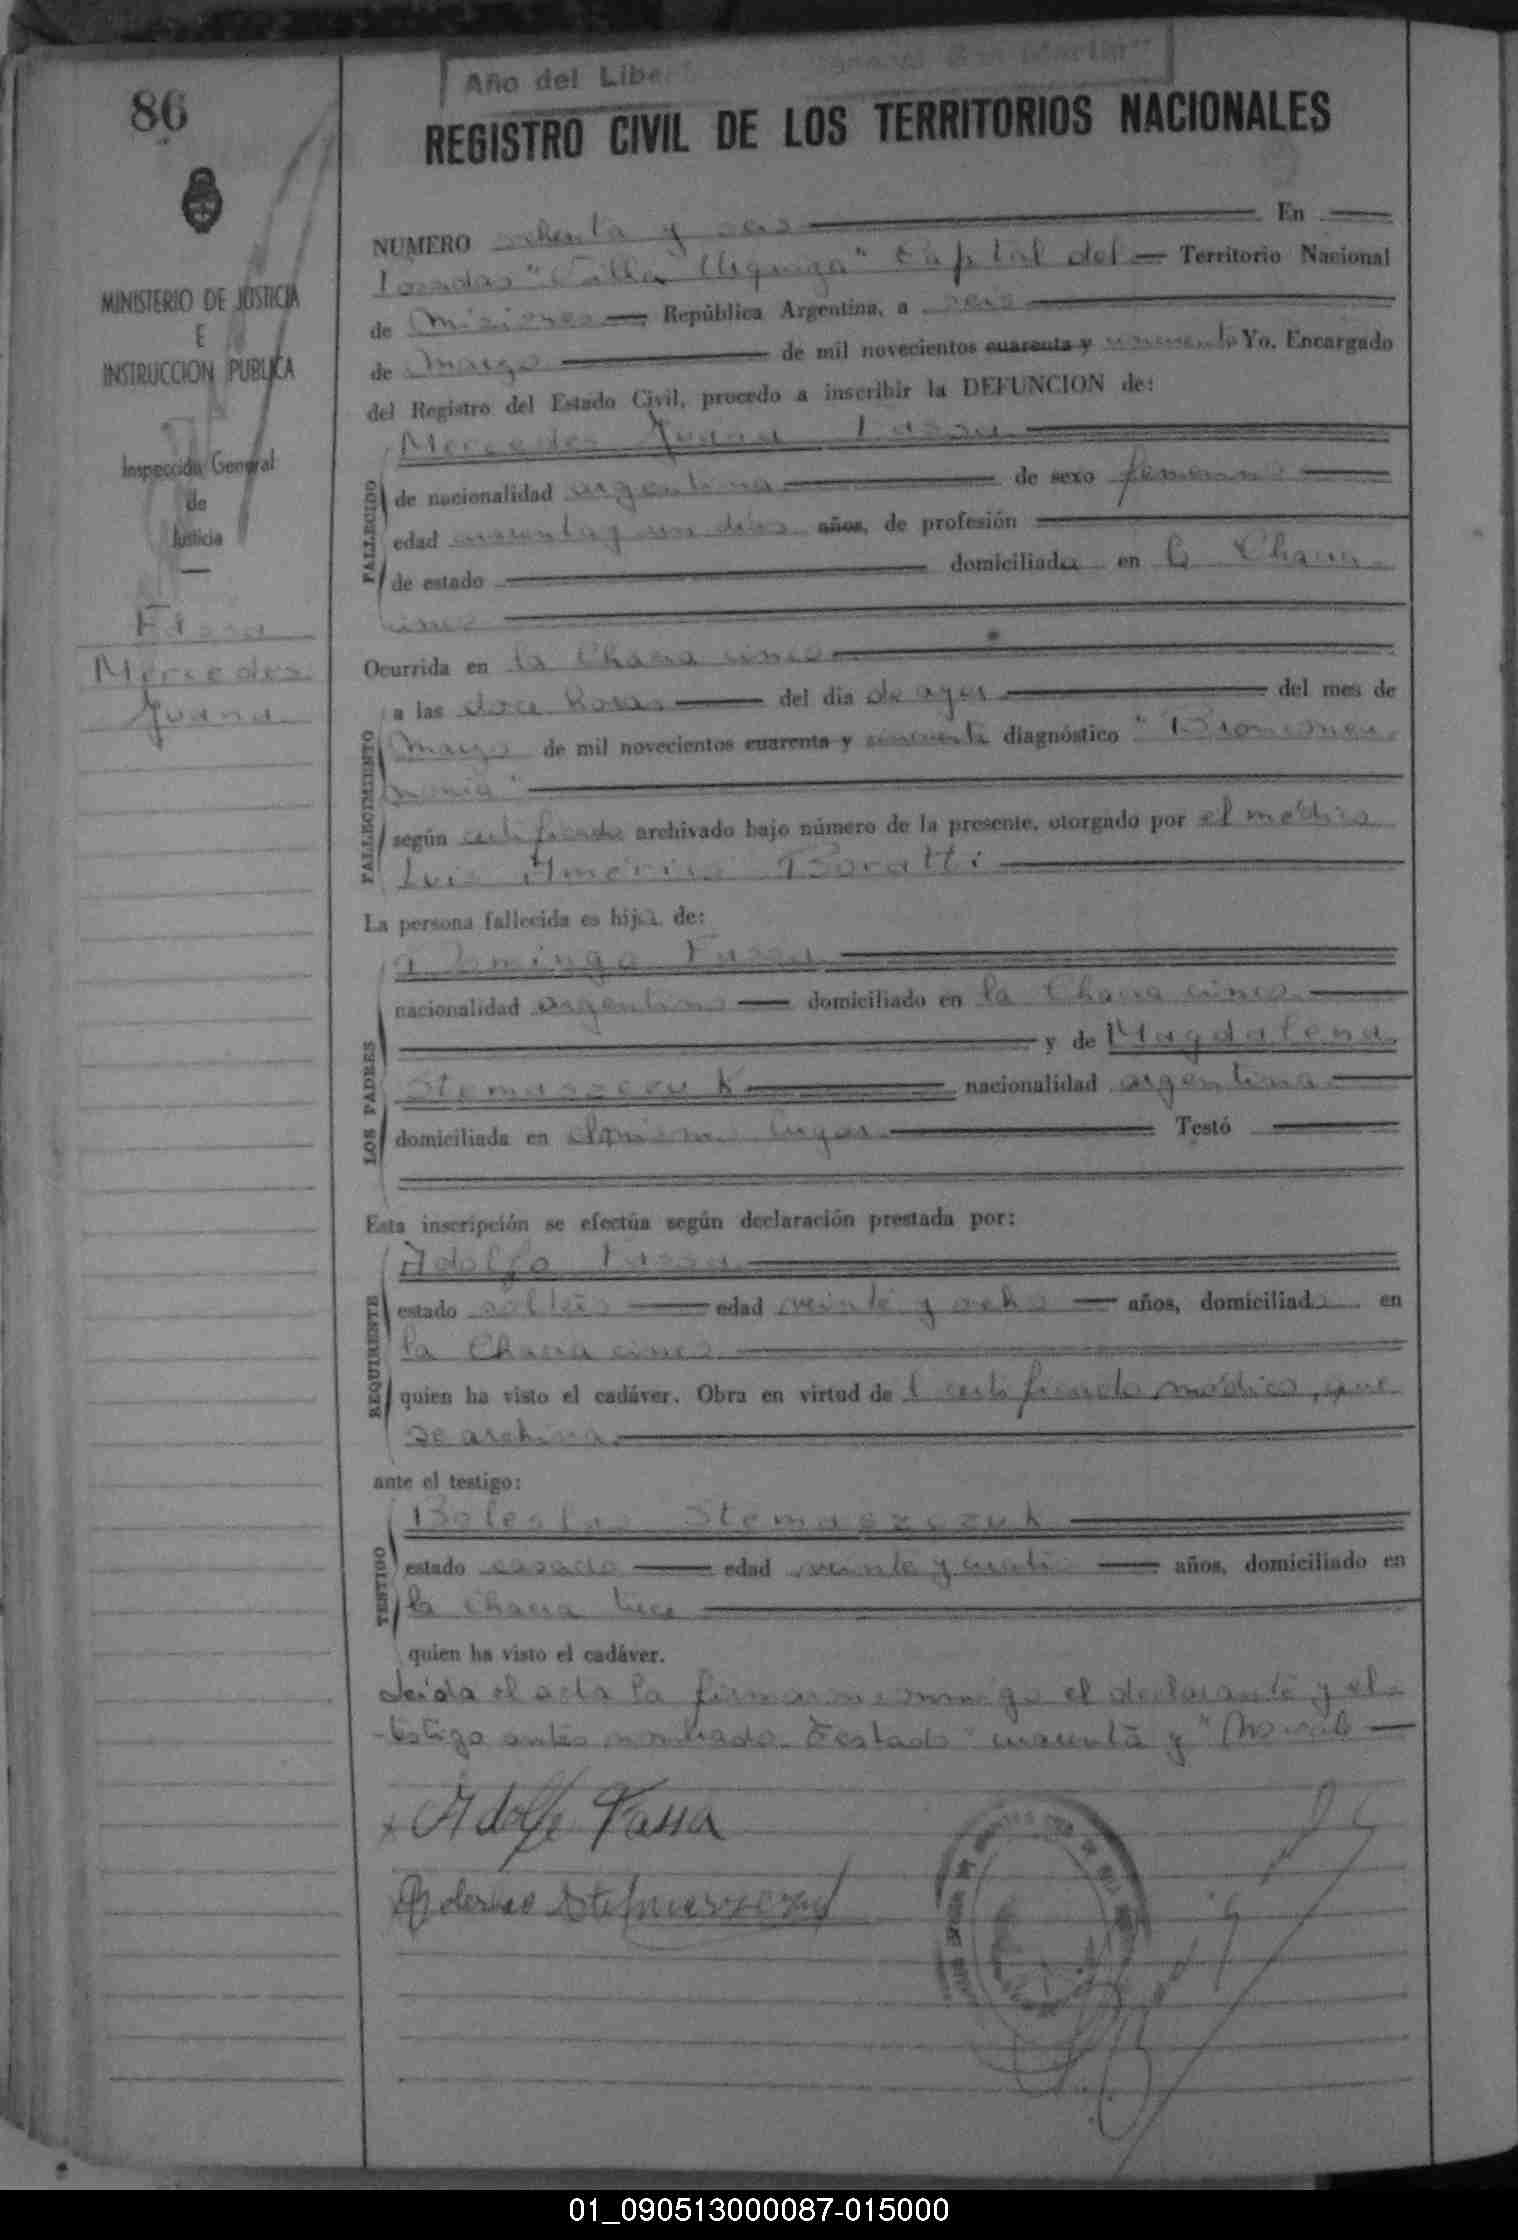 86
Año del Libertador General San Martín"
REGISTRO CIVIL DE LOS TERRITORIOS NACIONALES
MINISTERIO DE JUSTICIA
E
INSTRUCCION PUBLICA
Inspección General
de
Justicia
Fassa
Mercedes
Juana
NUMERO ochenta y seis En
Posadas "Villa Urquiza" Capital del Territorio Nacional
de Misiones República Argentina, a seis
de Mayo de mil novecientos cuarenta y cincuenta Yo, Encargado
del Registro del Estado Civil, procedo a inscribir la DEFUNCION de:
Mercedes Juana Fassa
FALLECIDO
de nacionalidad argentina de sexo femenino
edad cuarenta y un días años, de profesión
de estado domiciliada en la Chacra
cinco
Ocurrida en la Chacra cinco
FALLECIMIENTO
a las doce horas del día de ayer del mes de
Mayo de mil novecientos cuarenta y cincuenta diagnóstico "Bronconeu-
monia"
según certificado archivado bajo número de la presente, otorgado por el médico
Luis Américo Boratti
La persona fallecida es hija de:
LOS PADRES
Domingo Fassa
nacionalidad argentino domiciliado en la Chacra cinco
y de Magdalena
Stemaszczuk nacionalidad argentina
domiciliada en el mismo lugar Testó
Esta inscripción se efectúa según declaración prestada por:
REQUIRENTE
Adolfo Fassa
estado soltero edad veinte y ocho años, domiciliado en
la Chacra cinco
quien ha visto el cadáver. Obra en virtud del certificado médico, que
se archiva
ante el testigo:
TESTIGO
Boleslao Stemaszczuk
estado casado edad veinte y cuatro años, domiciliado en
la Chacra trece
quien ha visto el cadáver.
Leida el acta la firmaron conmigo el declarante y el
testigo antes nombrado. Testado "cuarenta y" No vale
Adolfo Fassa
01_090513000087-015000